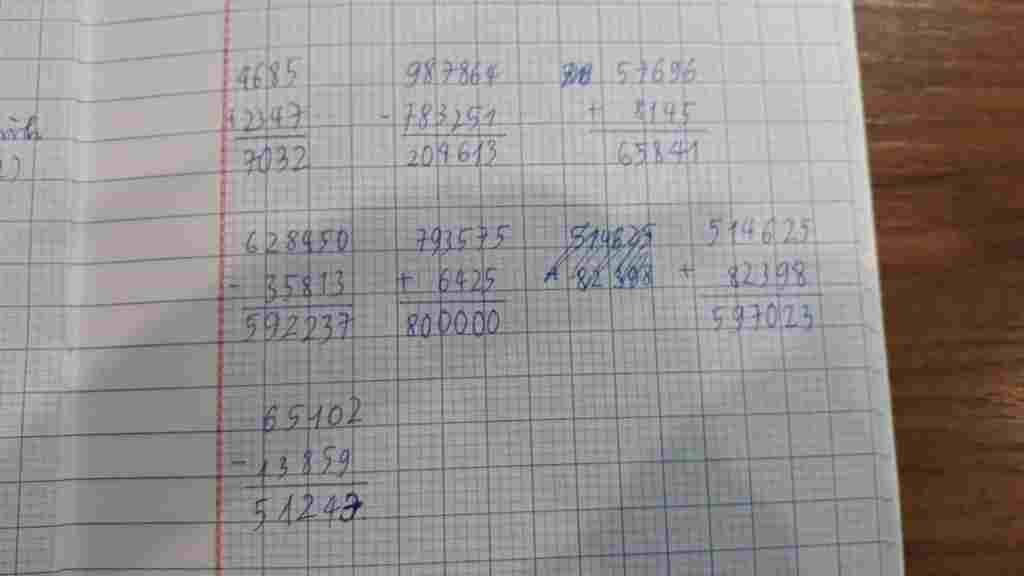 4685 987864 57696
+ 2347 - 783251 + 8145
7032 204613 65841
628450 793575 514625 514625
- 35813 + 6425 82398 + 82398
592237 800000 597023
65102
- 13859
51243